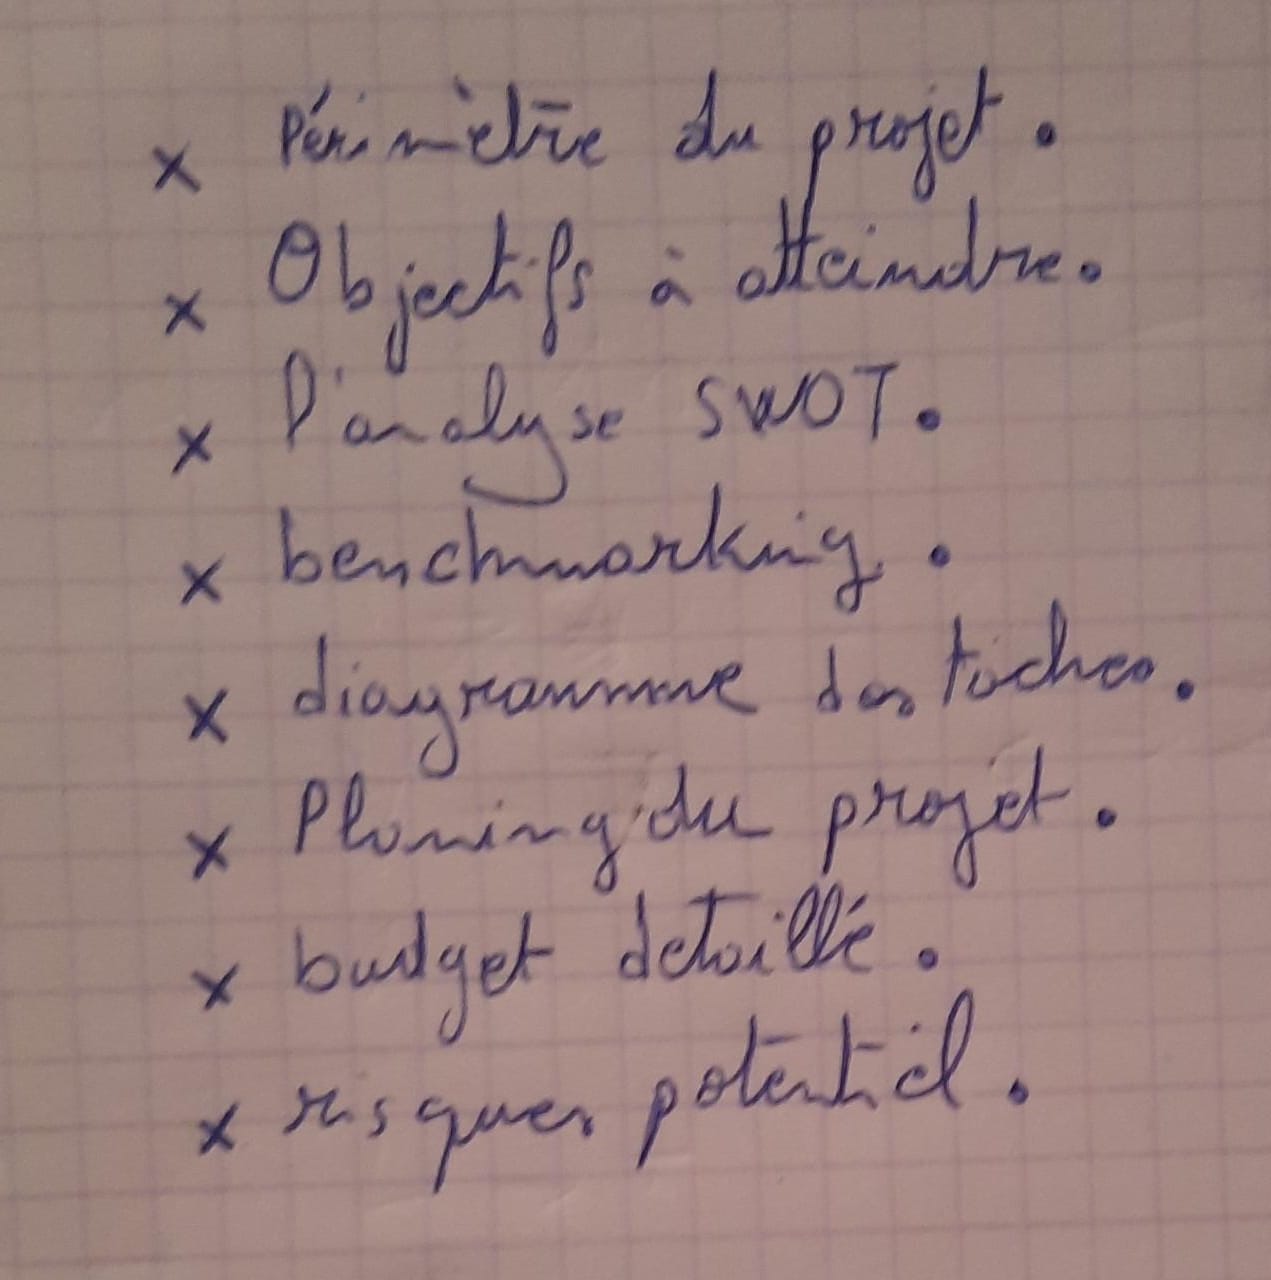 x Périmètre du projet.
x Objectifs à atteindre.
x l'analyse SWOT.
x benchmarking.
x diagramme des tâches.
x Planing du projet.
x budget detaillé.
x risques potentiel.